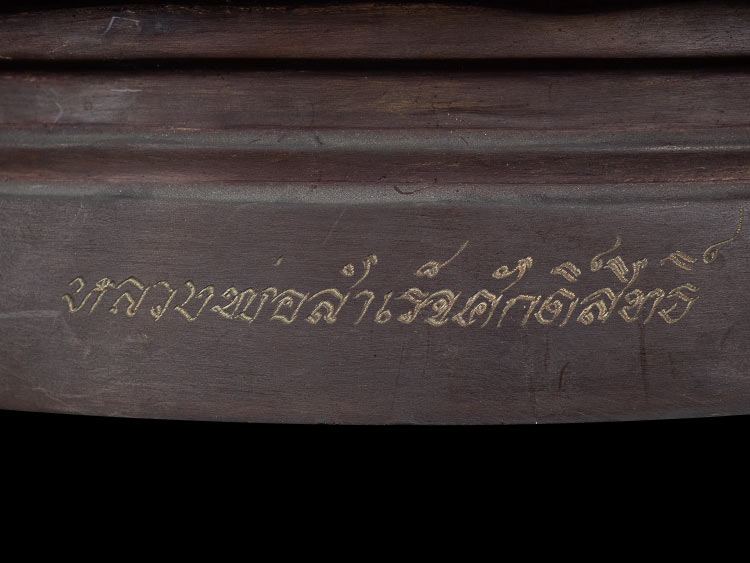 หลวงพ่อสำเร็จศักดิ์สิทธิ์